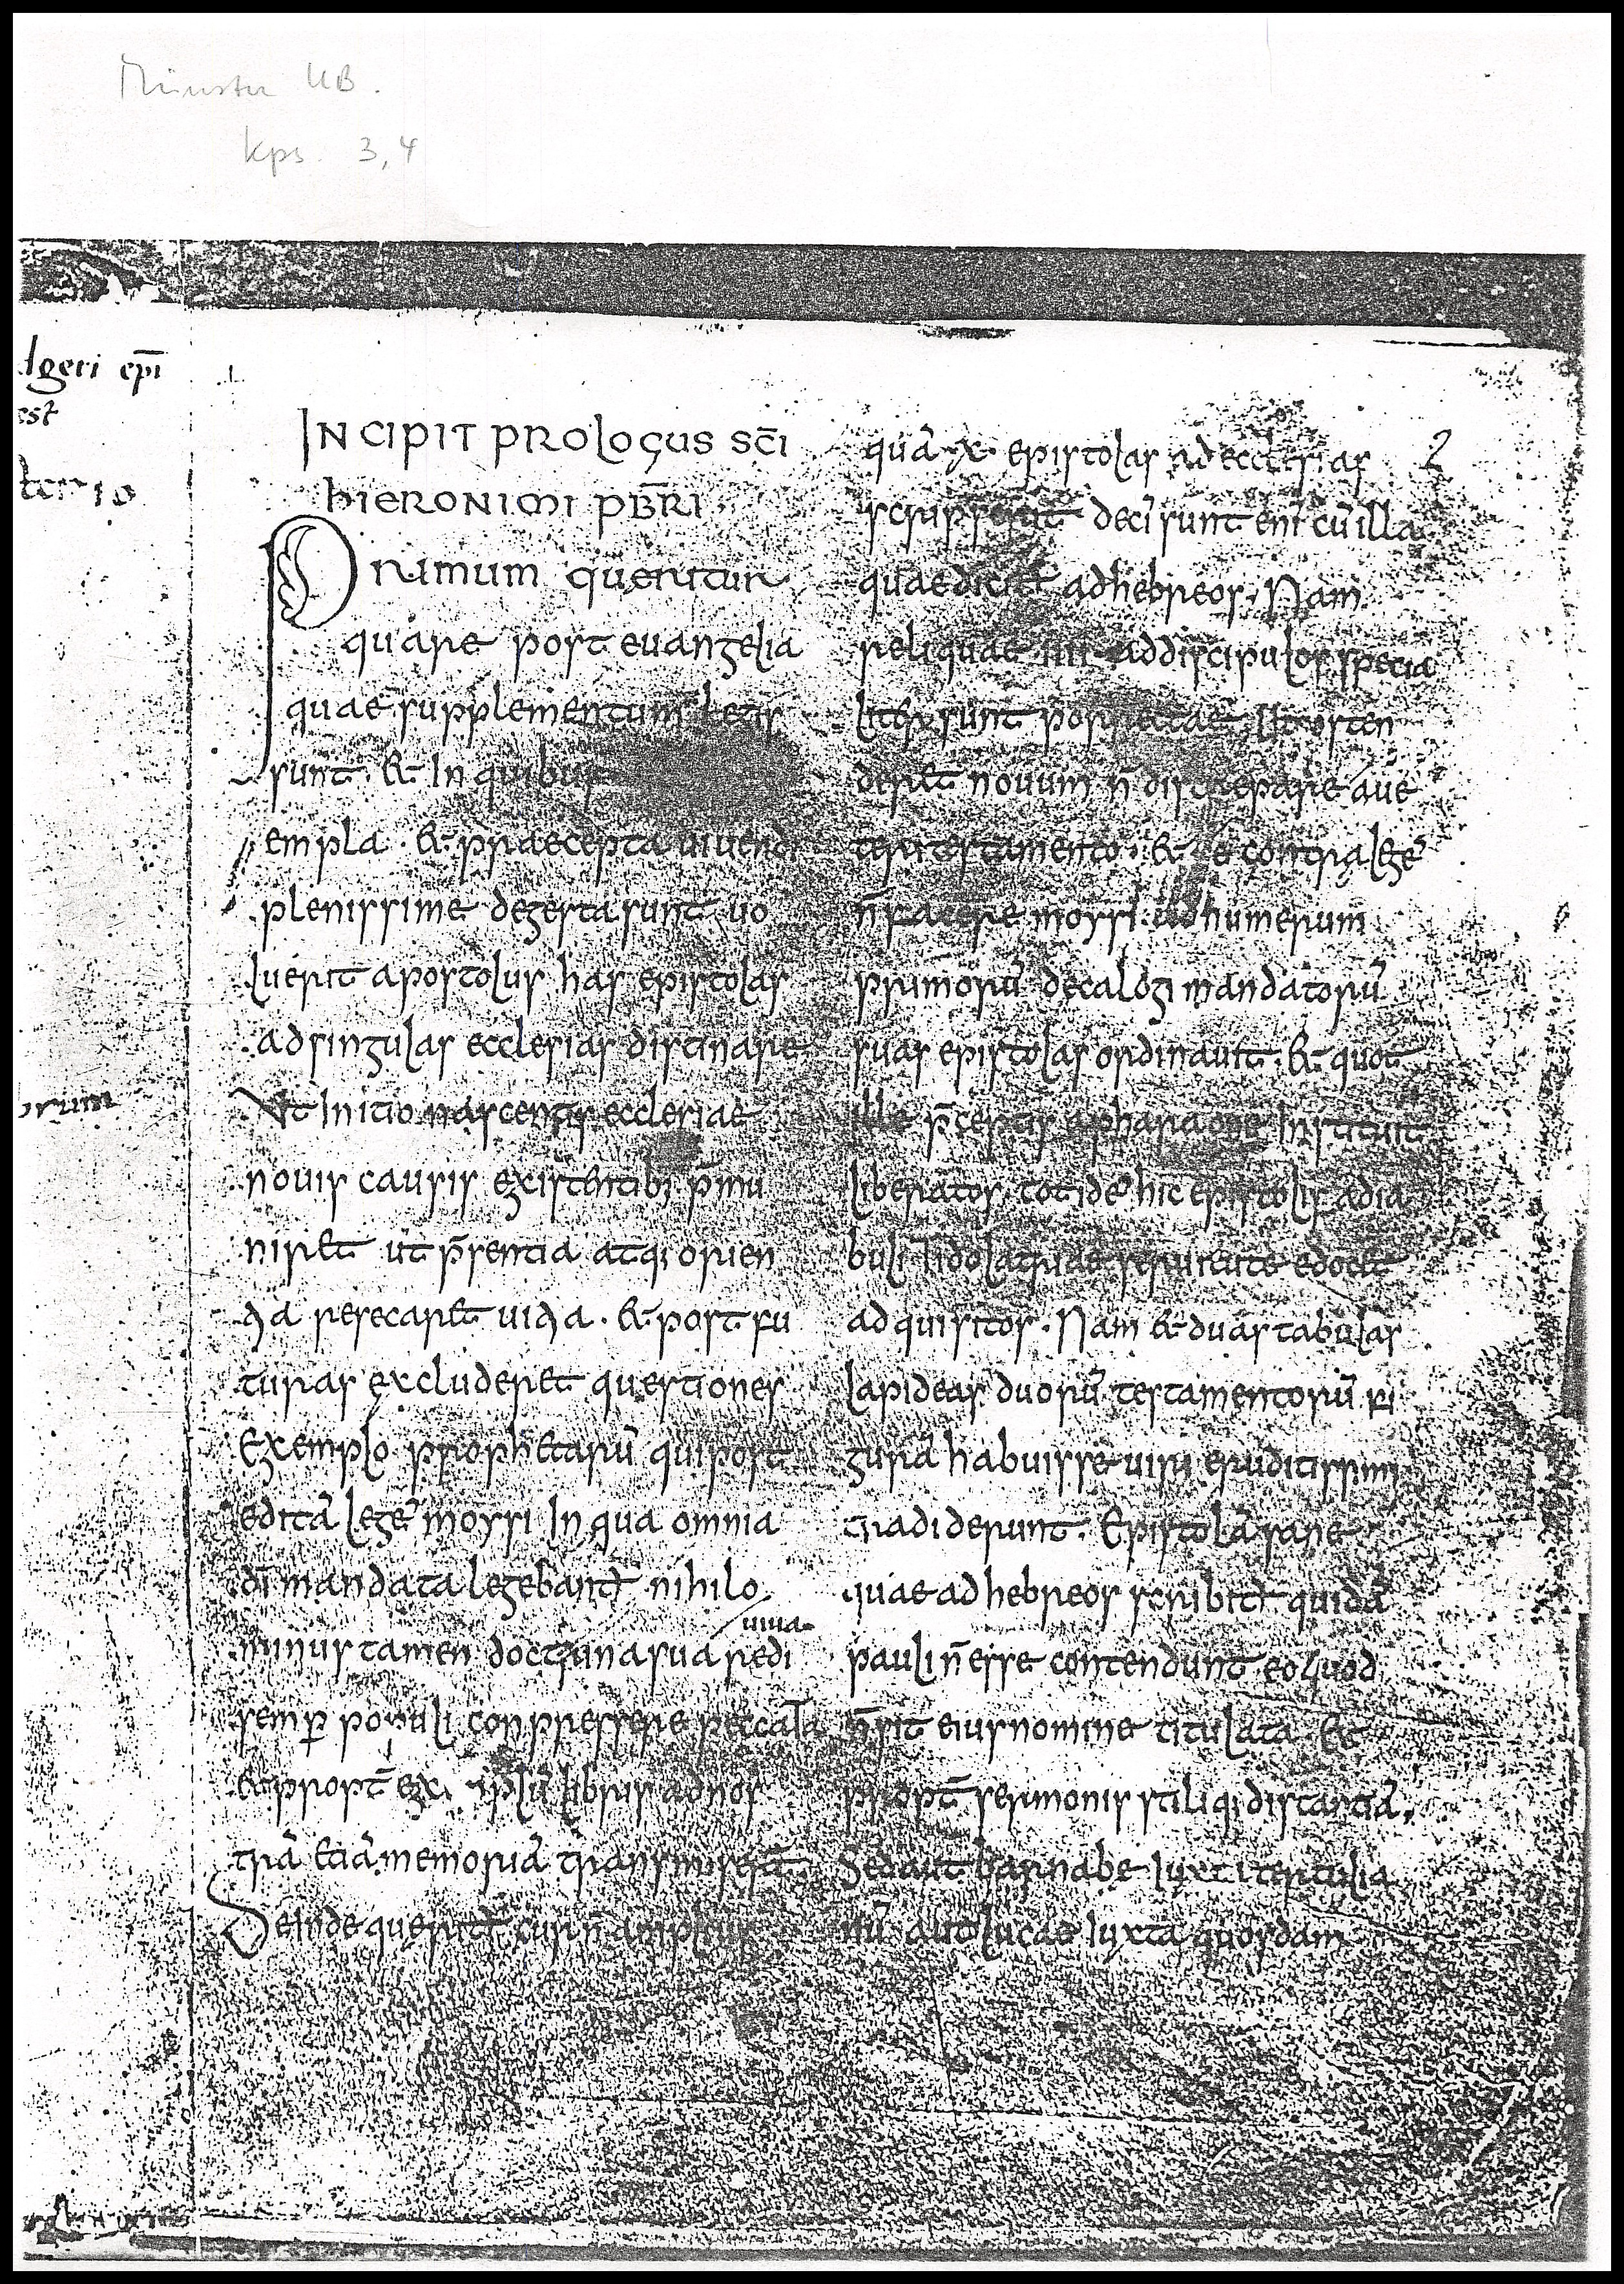 Münster UB.
Kps. 3,4
lgeri ep̄i
est
orum
INCIPIT PROLOGUS SC̄I
HIERONIMI PB̄RI
Primum queritur
quare post euangelia
quae supplementum legis
sunt · & In quibus
empla · & praecepta uiuendi
plenissime degesta sunt uo
luerit apostolus has epistolas
ad singulas ecclesias distinare
Vt Initio nascentis ecclesiae
nouis causis existentib; p̄mu
niret ut p̄sentia atq; orien
tia resecaret uitia · & post fu
turas excluderet questiones
Exemplo prophetarū qui post
editā legē moysi In qua omnia
dī mandata legebant̄ nihilo
minus tamen doctrina sua redi
uiua
semp̱ populi conpressere peccata
Et propt̄ ex libris ad nos
trā etiā memoriā transmiser̄
Deinde querit̄ cur n̄ amplius
quā · X · epistolas ad ecclesias 2
scripserit decē sunt enī cū illa
quae dicit̄ ad hebreos · Nam
reliquae IIII ad discipulos specia
liter sunt porrectae Ut osten
deret nouum n̄ discrepare aue
teri testamento · & se contra legē
n̄ facere moysi Ad numerum
primorū decalogi mandatorū
suas epistolas ordinauit · & quot
ille p̄ceptis a pharaone Instituit
liberatos · totidē hic epistolis a dia
buli Idolatriae seruitute edocet
ad quisitos · Nam & duas tabulas
lapideas duorū testamentorū fi
gurā habuisse uiri eruditissimi
tradiderunt · Epistolā sane
quae ad hebreos scribit̄ quidā
pauli n̄ esse contendunt eo quod
n̄ sit eius nomine titulata Et
propt̄ sermonis stiliq; distantiā
Sed aut barnabe Iuxta tertulia
nū aut lucae Iuxta quosdam